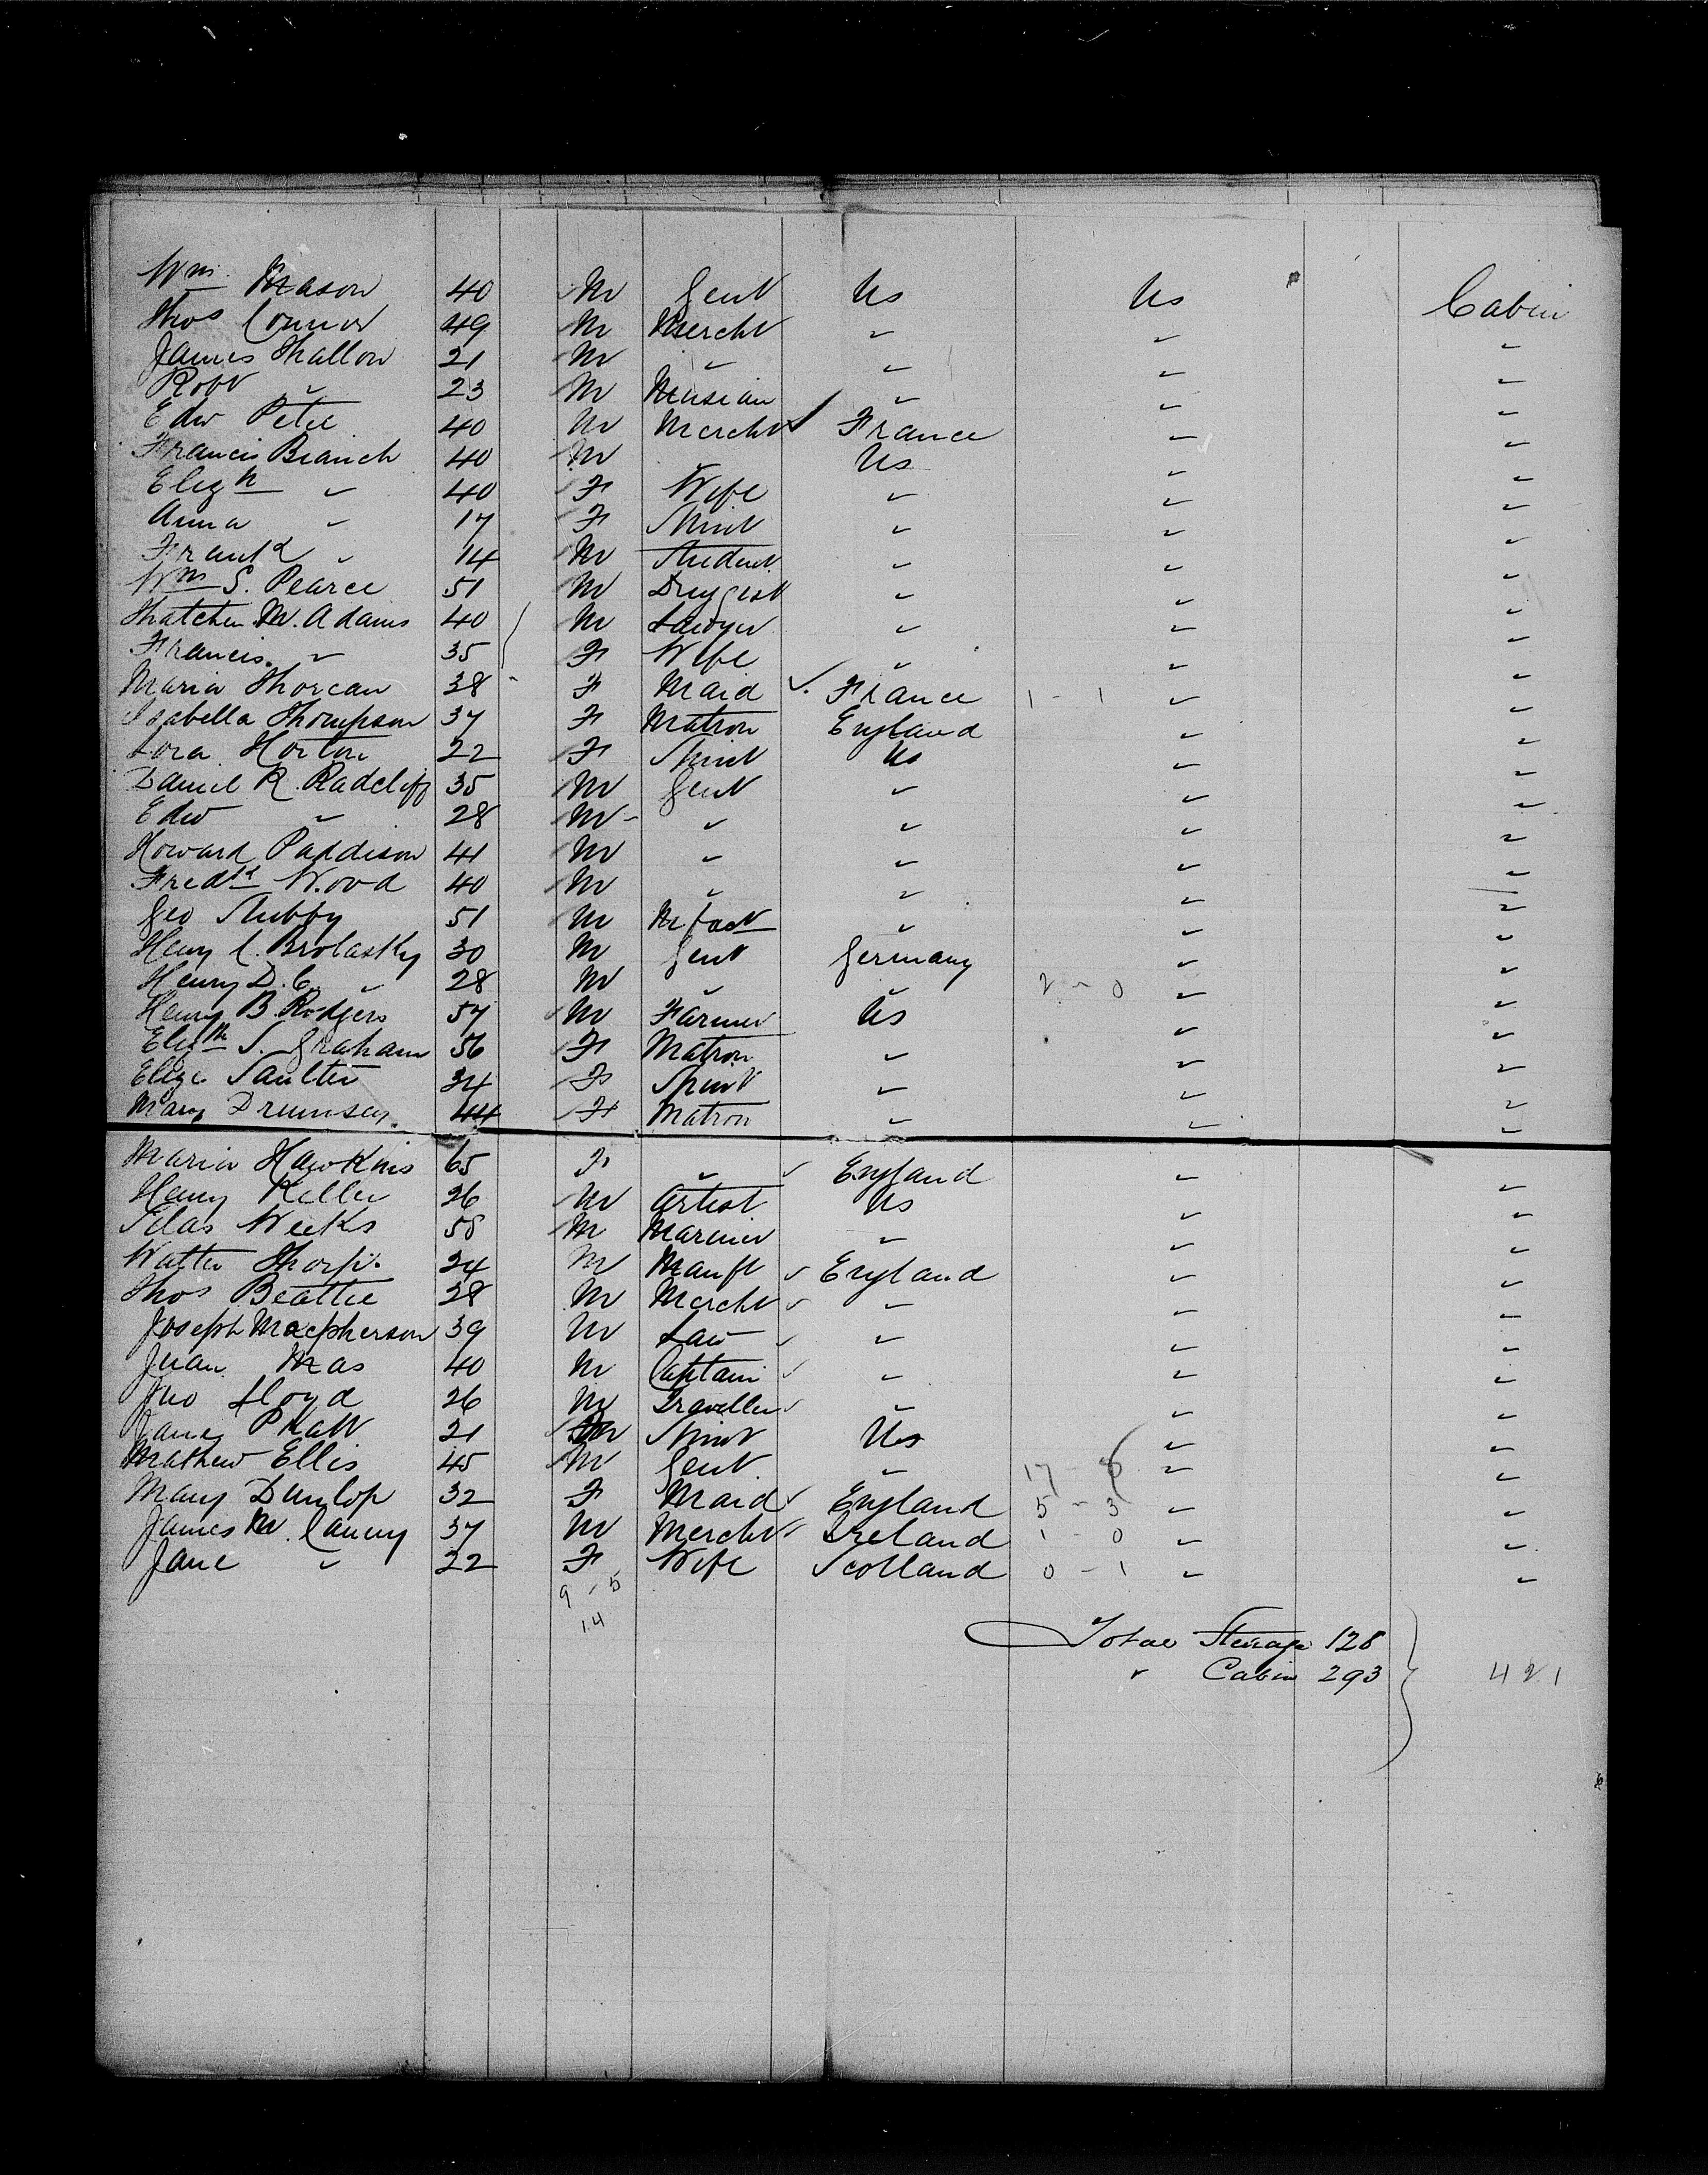 Wm. Mason 40 M Gent Us Us Cabin
Thos Connor 49 M Mercht " " "
James Shallow 21 M " " " "
Robt " 23 M Musian " " "
Edw Petie 40 M Mercht ✓ France " "
Francis Branch 40 M " Us " "
Elizh " 40 F Wife " " "
Anna " 17 F Spint " " "
Frank " 14 M Student " " "
Wm S. Pearce 51 M Druggist " " "
Thatcher M. Adams 40 M Lawyer " " "
Francis. " 35 F Wife " " "
Maria Thorcau 38 F Maid ✓ France 1 - 1 " "
Isabella Thompson 37 F Matron England " "
Lora Horton 22 F Spint Us " "
Daniel R. Radcliff 35 M Gent " " "
Edw " 28 M " " " "
Howard Paddison 41 M " " " "
Fredk Wood 40 M " " " "
Geo Stubby 51 M Mfact " " "
Heny C. Brolasky 30 M Gent Germany " "
Henry D. C. " 28 M " " 2 - 0 " "
Henry B. Rodgers 57 M Farmer Us " "
Elizth S. Graham 56 F Matron " " "
Eliza Saulter 34 F Spint " " "
Mary 44 F Matron " " "
Maria Hawkins 65 F " ✓ England " "
Henry Keller 26 M Artist Us " "
Silas Weeks 58 M Mariner " " "
Walter Thorp. 24 M Manft ✓ England " "
Thos Beattie 28 M Mercht ✓ " " "
Joseph Macpherson 39 M Law ✓ " " "
Juan Mas 40 M Captain ✓ " " "
Jno Lloyd 26 M Traveller ✓ " " "
Pratt 21 Spint Us " "
Mathew Ellis 45 M Gent. " 17 - 8 " "
Mary Dunlop 32 F Maid ✓ England 5 - 3 " "
James M. Caney 37 M Mercht ✓ Ireland 1 - 0 " "
Jane " 22 F Wife Scotland 0 - 1 " "
9 - 5
14
Total Steerage 128
" Cabin 293 421